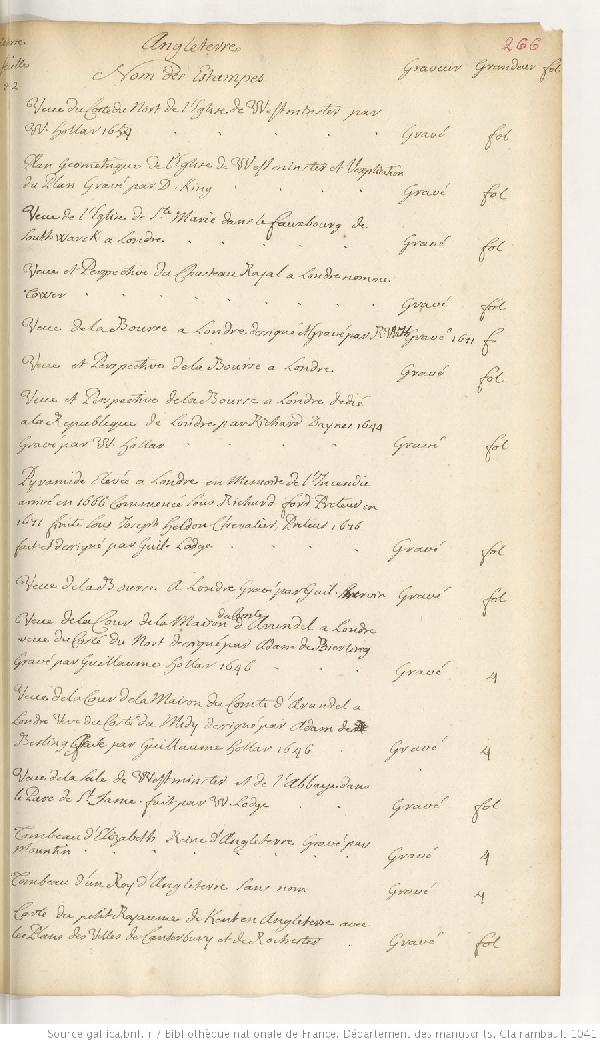 Angleterre 266
Nom des Estampes Graveur Grandeur fol
Veue du Costé du Nort de l'Eglise de Westminster par
W. Hollar 1654 Gravé fol
Plan Geometrique de l'Eglise de Westminster et l'explication
du Plan Gravé par D. King Gravé fol
Veue de l'Eglise de Ste Marie dans le fauxbourg de
Southwarck a Londre Gravé fol
Veue et Perspective du Chasteau Royal a Londre nommé
Tower Gravé fol
Veue de la Bourse a Londre designé et Gravé par R. Gravé 1671 f
Veue et Perspective de la Bourse a Londre Gravé fol
Veue et Perspective de la Bourse a Londre dedié
a la Republique de Londre par Richard Daynes 1644
Gravé par W. Hollar Gravé fol
Pyramide Elevée a Londre en Memoire de l'Incendie
arrivé en 1666 Commencé sous Richard ford Preteur en
1671 finite sous Joseph Heldon Chevalier, Preteur 1676
fait et designé par Guil. Lodge Gravé fol
Veue de la Bourse A Londre Gravé par Guil. Gravé fol
Veue de la Cour de la Maison du Conte d'Arundel a Londre
veue du Costé du Nort designé par Adam de Bierling
Gravé par Guillaume Hollar 1646 Gravé 4
Veue de la Cour de la Maison du Comte d'Arundel a
Londre Veue du Costé du Midy designé par Adam de
Berling Gravé par Guillaume Hollar 1646 Gravé 4
Veue de la Sale de Westminster et de l'Abbaye dans
le Parc de St. Jame fait par W. Lodge Gravé fol
Tombeau d'Elizabeth Reine d'Angleterre Gravé par
Mountin Gravé 4
Tombeau d'un Roy d'Angleterre sans nom Gravé 4
Carte du petit Royaume de Kent en Angleterre avec
les Plans des Villes de Canterbury et de Rochester Gravé fol
Source gallica.bnf.fr / Bibliothèque nationale de France. Département des manuscrits. Clairambault 1041